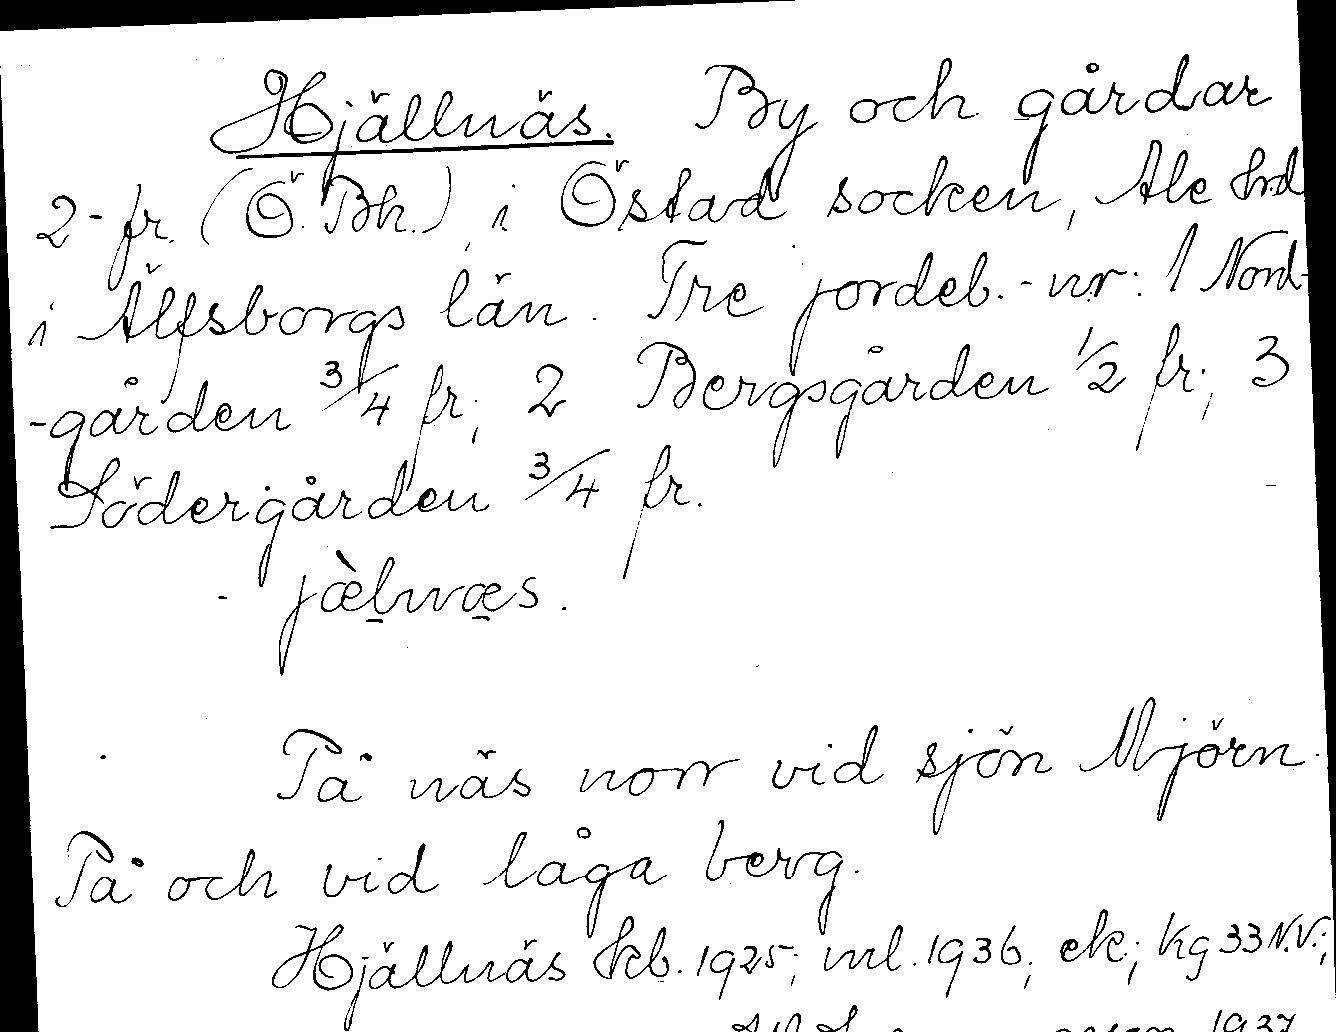 Hjällnäs. By och gårdar
2-fr. (Ö. Bh.) i Östad socken, Ale hrd
i Älfsborgs län. Tre jordeb.-nr: 1 Nord-
-gården 3/4 fr; 2 Bergsgården 1/2 fr; 3
Södergården 3/4 fr.
- jæ̀l̠næ̠s.
På näs norr vid sjön Mjörn.
På och vid låga berg.
Hjällnäs Jeb. 1925; ml. 1936; ek; kg 33 N.V.;
1937